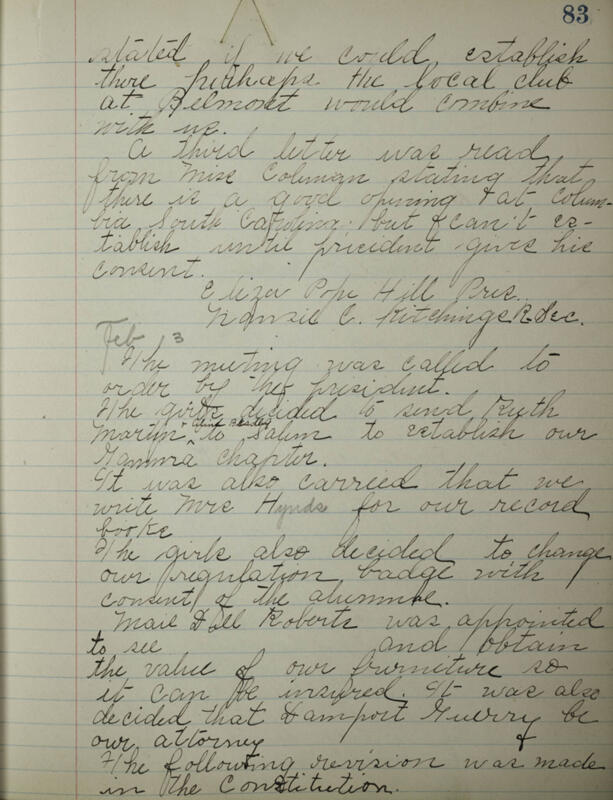 83
stated if we could establish
there perhaps the local club
at Belmont would combine
with us.
A third letter was read
from Miss Coleman stating that
there is a good opening at Colum-
bia South Carolina but can't es-
tablish until president gives his
consent.
Eliza Pope Hill Pres.
C. Kitchings R. Sec.
Feb 3
The meeting was called to
order by the president.
The girls decided to send Ruth
Martin + to Salem to establish our
Gamma chapter.
It was also carried that we
write Mrs Hynds for our record
books
The girls also decided to change
our regulation badge with
consent of the alumnae.
Dell Roberts was appointed
to see and obtain
the value of our furniture so
it can be insured. It was also
decided that Guerry be
our attorney
The following revision was made
in the Constitution.